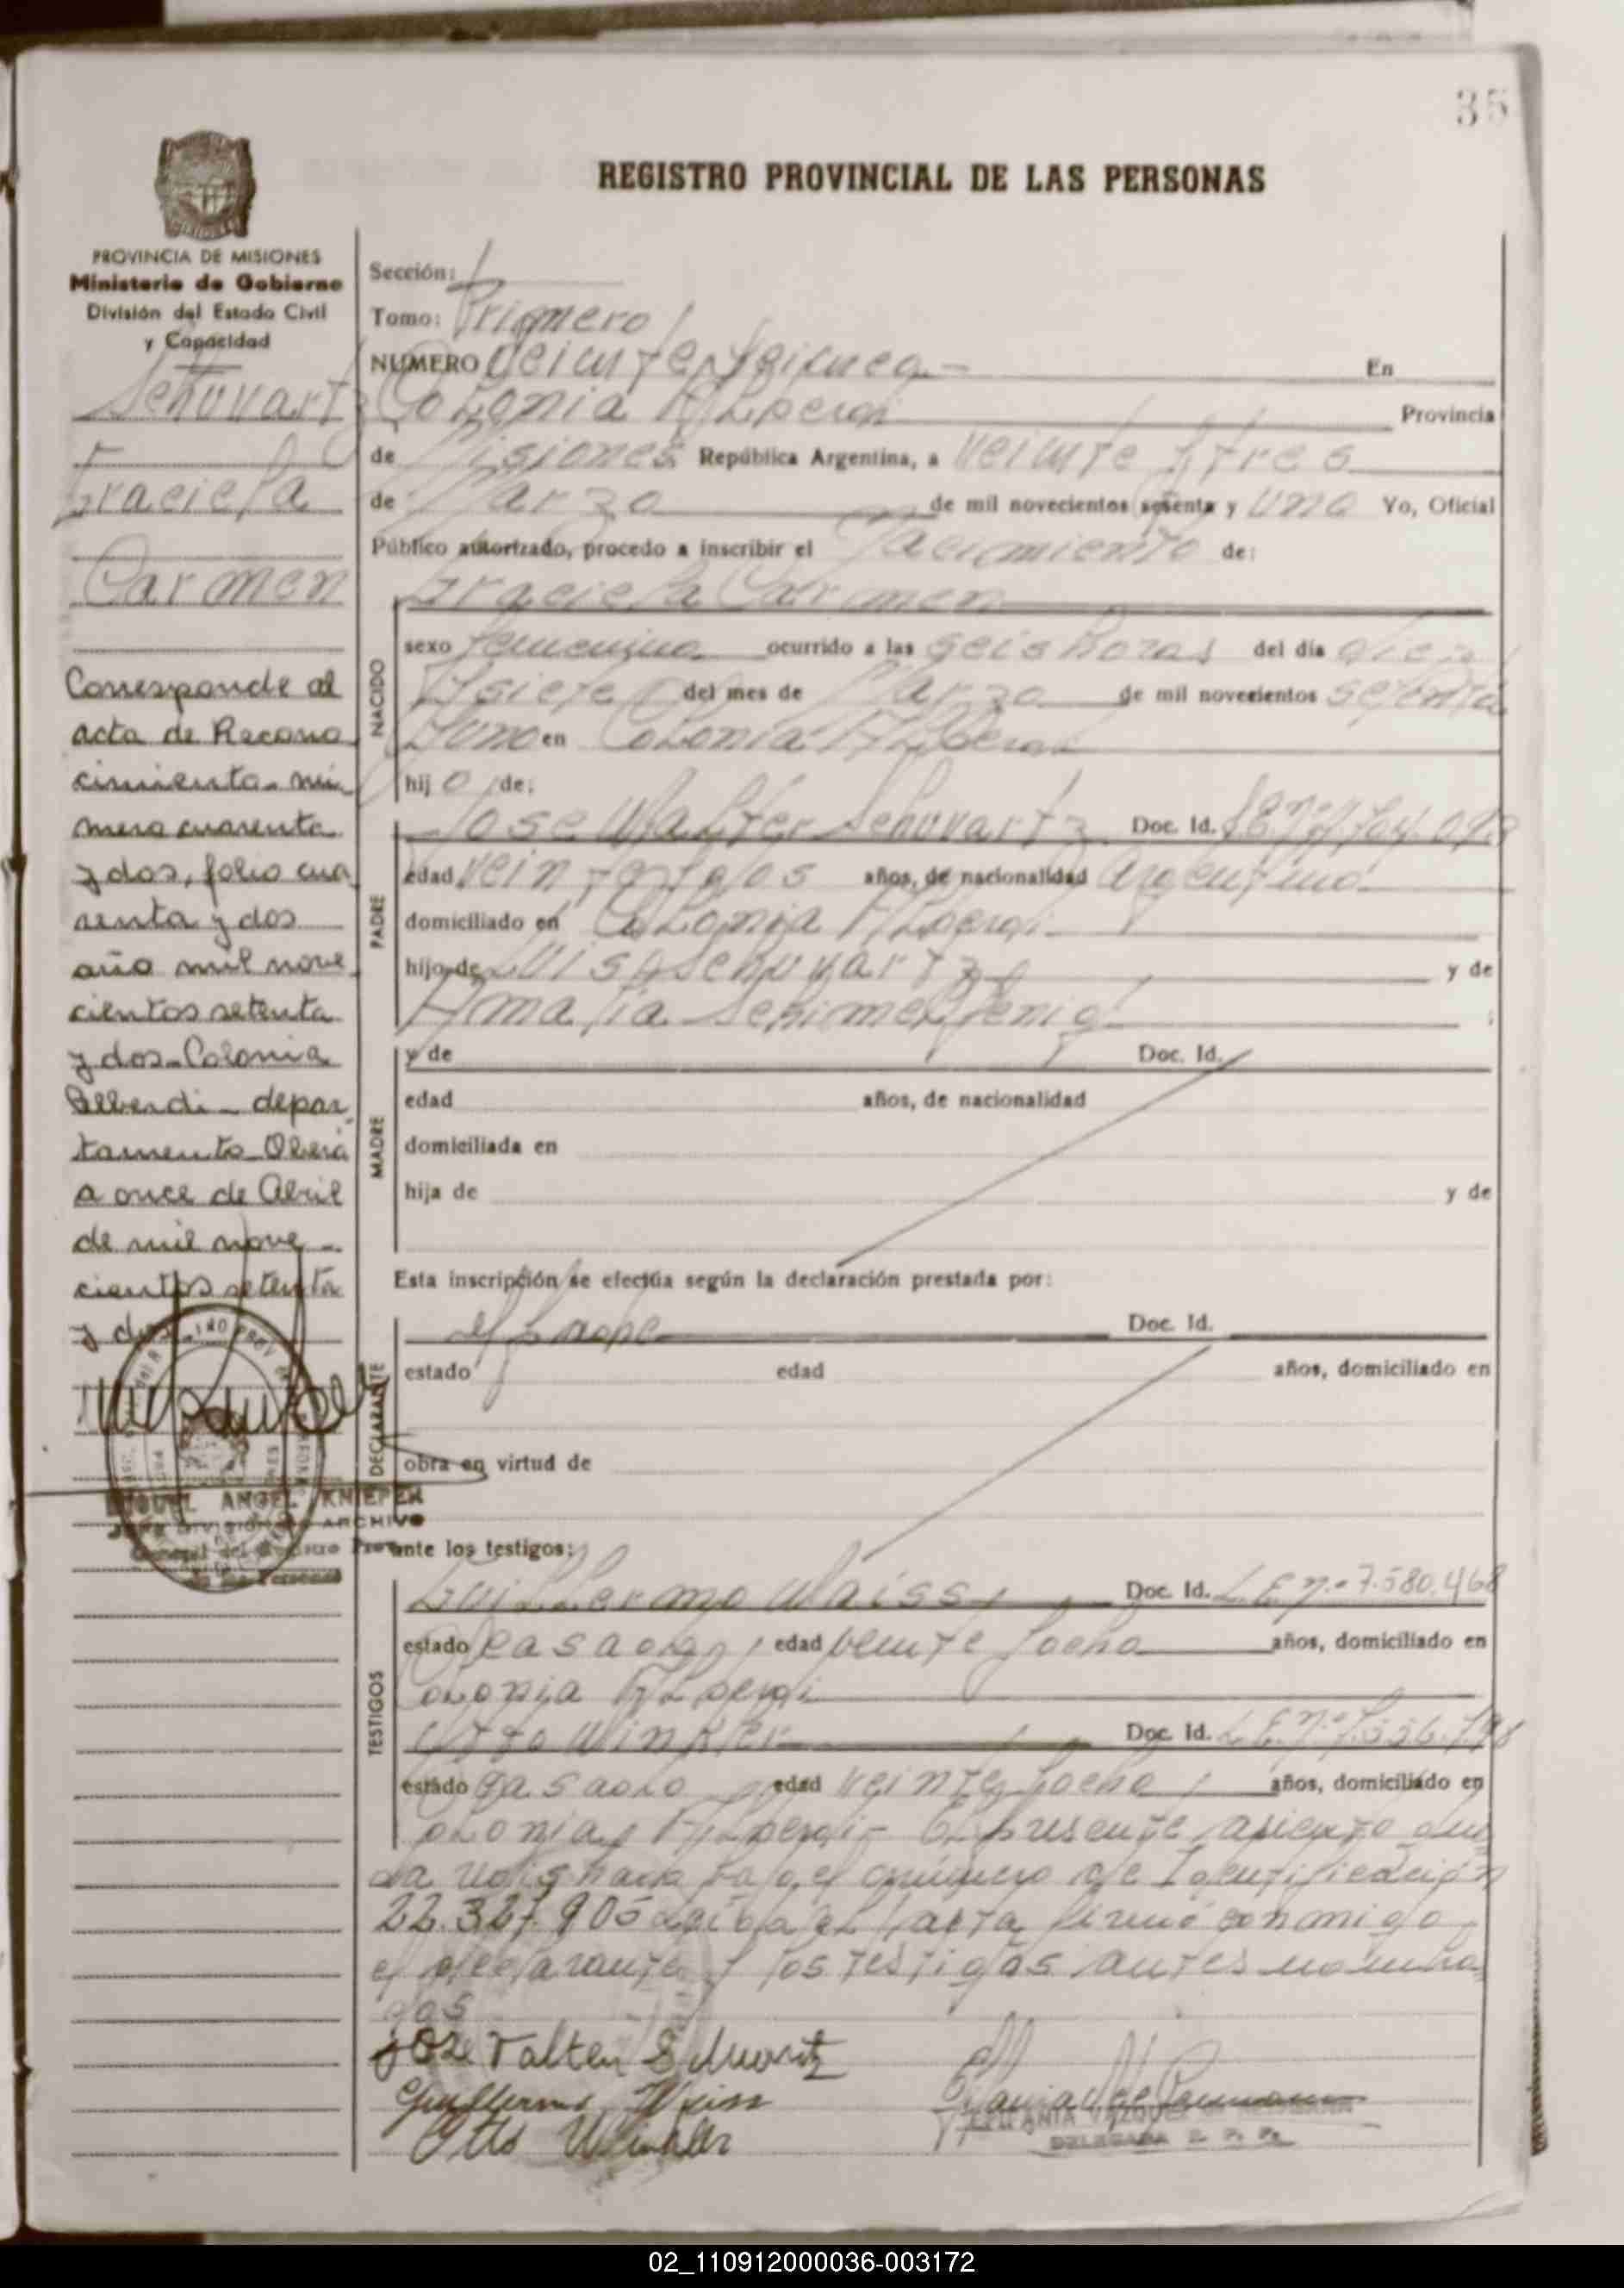 35
REGISTRO PROVINCIAL DE LAS PERSONAS
PROVINCIA DE MISIONES
Ministerio de Gobierno
División del Estado Civil
y Capacidad
Schuvartz
Graciela
Carmen
Corresponde al
acta de Recono
cimiento nú
mero cuarenta
y dos, folio cua
renta y dos
año mil nove
cientos setenta
y dos - Colonia
Alberdi - depar
tamento Oberá
a once de Abril
de mil nove -
cientos setenta
y dos -
MIGUEL ANGEL KNIEPER
JEFE DIVISION ARCHIVO
Sección: 1
Tomo: Primero
NUMERO Veinte y cinco - En
Colonia Alberdi Provincia
de Misiones República Argentina, a veinte y tres
de Marzo de mil novecientos setenta y uno Yo, Oficial
Público autorizado, procedo a inscribir el Nacimiento de:
NACIDO
Graciela Carmen
sexo femenino ocurrido a las seis horas del día diez
y siete del mes de Marzo de mil novecientos setenta
y uno en Colonia Alberdi
hij o de:
PADRE
Jose Walter Schuvartz Doc. Id.
edad veinte y dos años, de nacionalidad Argentino
domiciliado en Colonia Alberdi
hijo de Luis Schuvartz y de
Amalia
MADRE
y de Doc. Id.
edad años, de nacionalidad
domiciliada en
hija de y de
Esta inscripción se efectúa según la declaración prestada por:
DECLARANTE
el padre Doc. Id.
estado edad años, domiciliado en
obra en virtud de
ante los testigos:
TESTIGOS
Guillermo Waiss Doc. Id. L.E. nº 7.580.468
estado casado edad veinte y ocho años, domiciliado en
Colonia Alberdi
Otto Winkler Doc. Id. L.E. nº
estado casado edad veinte y ocho años, domiciliado en
Colonia Alberdi - El presente asiento que
da bajo el número de Identificación
22.327.905 Leída el acta firmó conmigo
el declarante y los testigos antes nombra
dos
Jose Valter Schwartz
Guillermo Weiss
Otto Winkler
EPIFANIA VAZQUEZ
DELEGADA R. P. P.
02_110912000036-003172